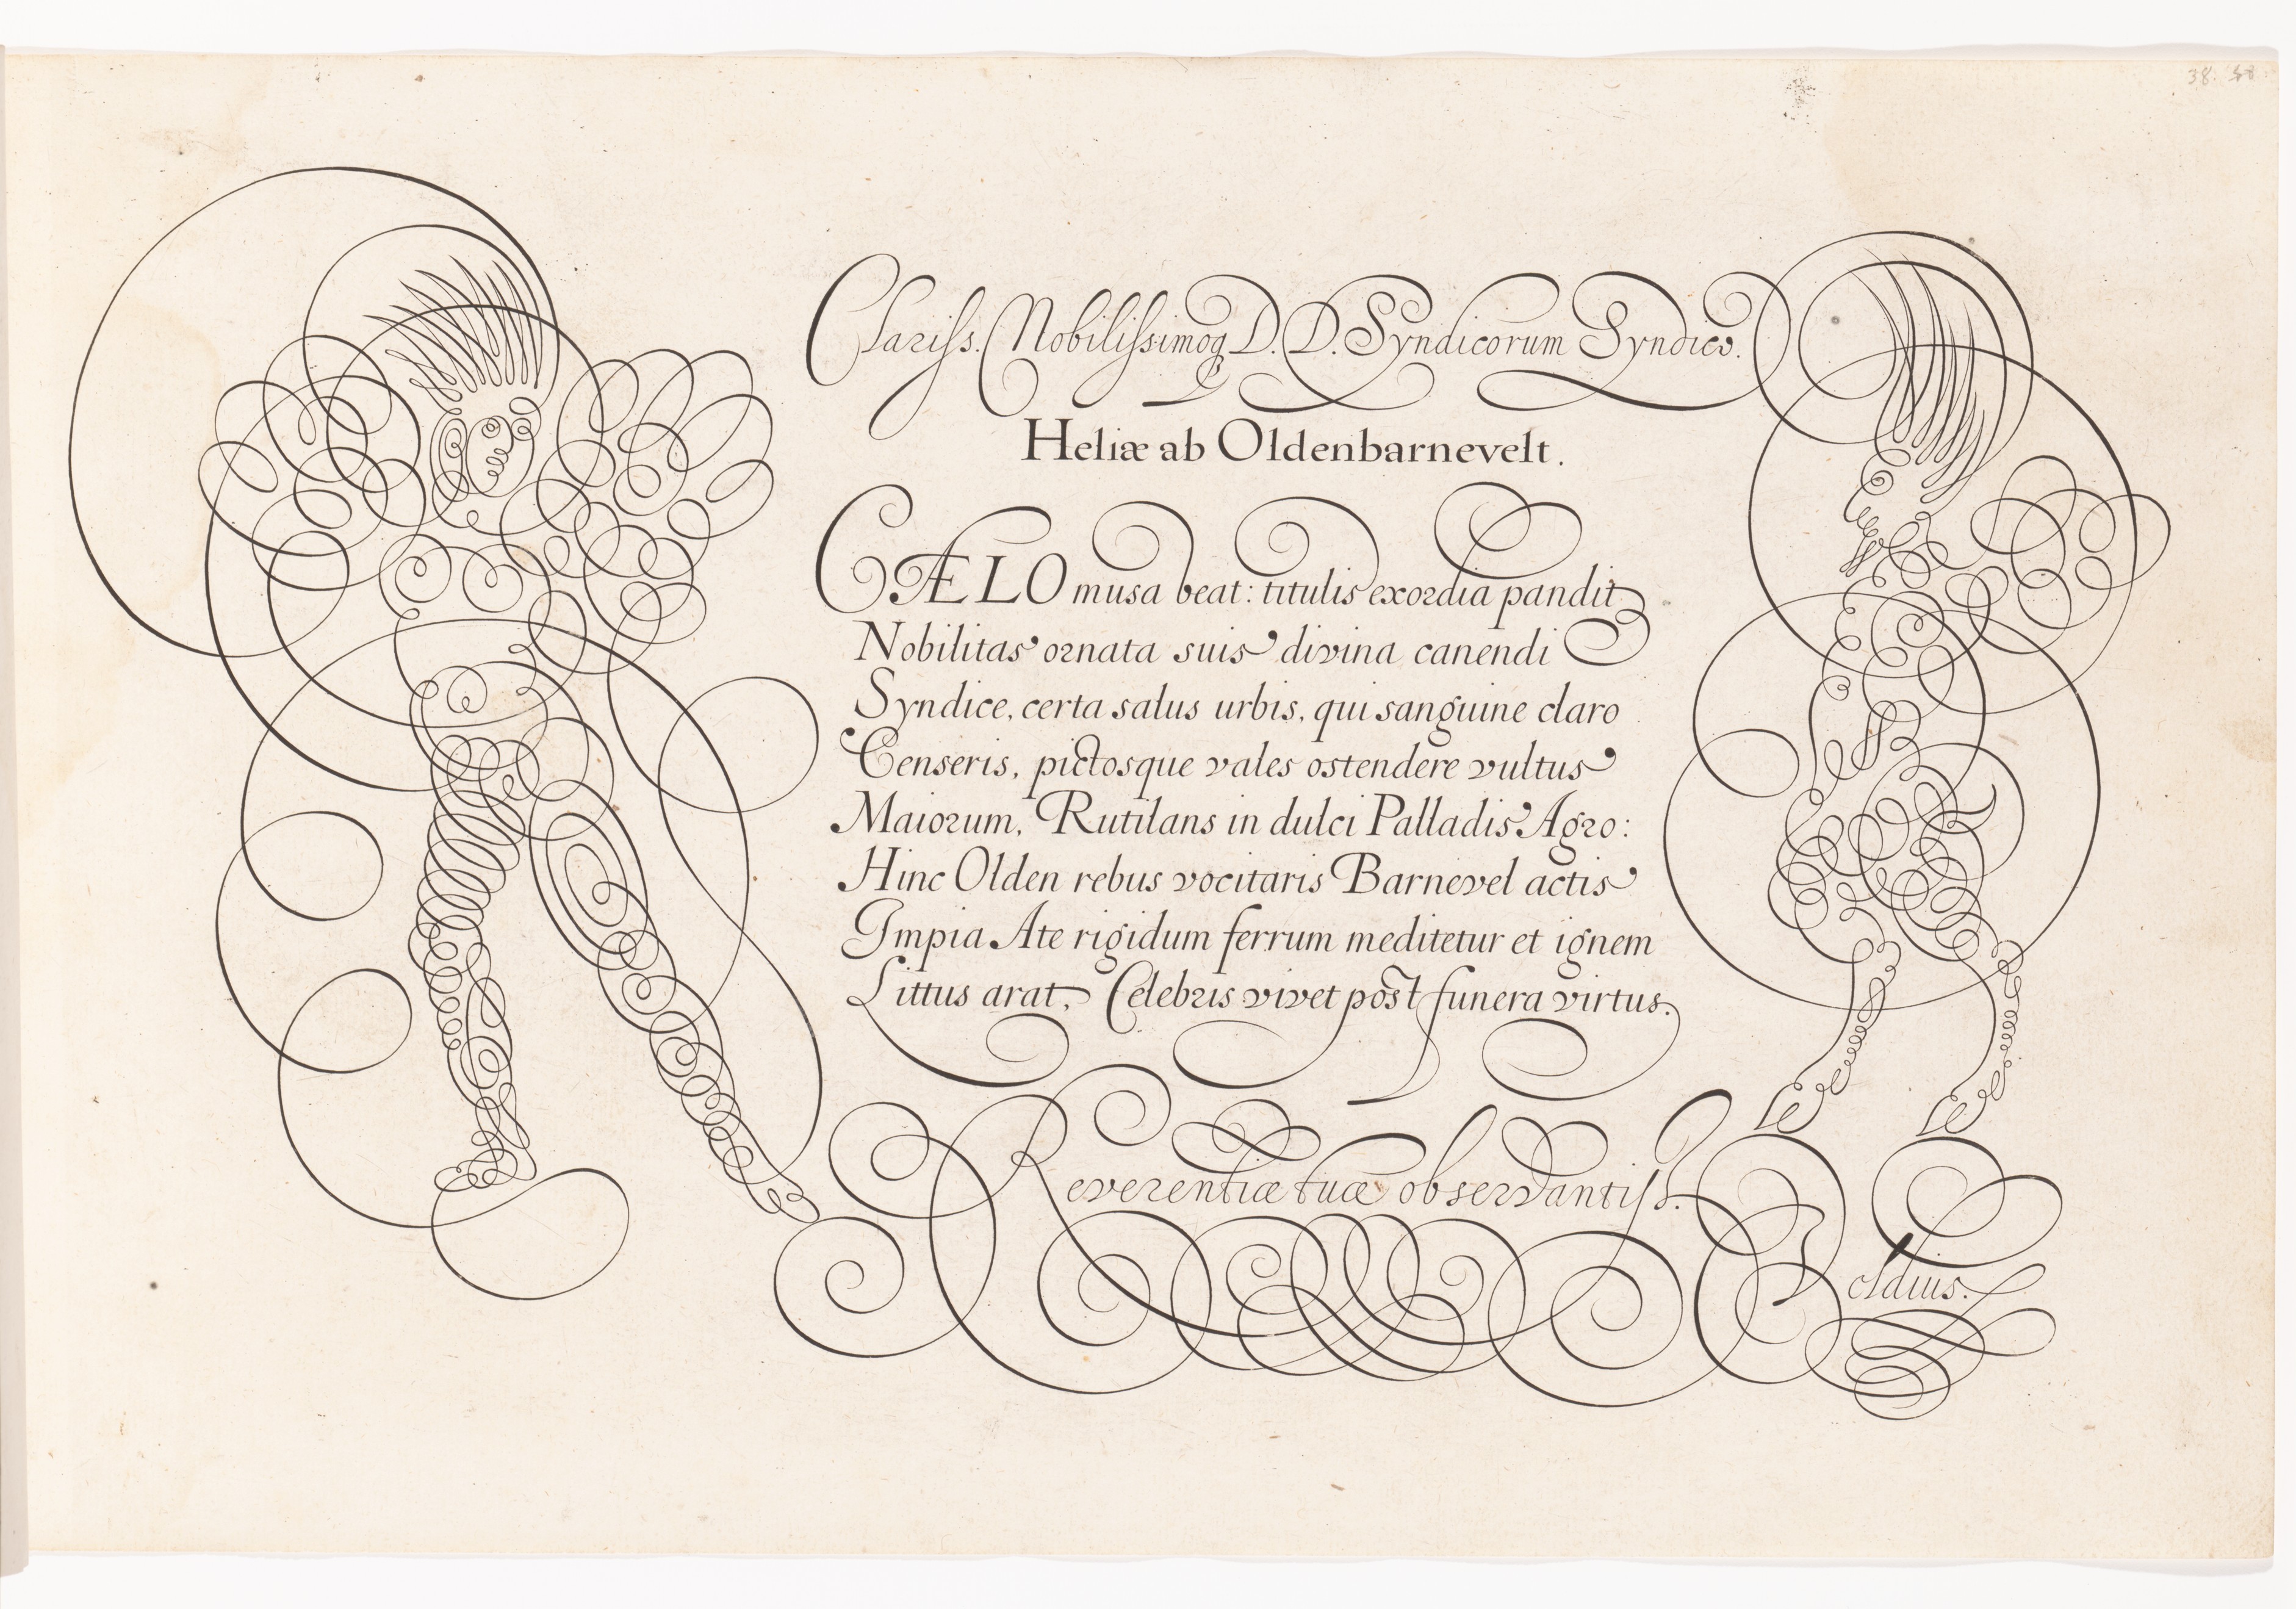 38.
Clariss. Nobilissimoq D. D. Syndicorum Syndico.
Heliæ ab Oldenbarnevelt.
CÆLO musa beat: titulis exordia pandit
Nobilitas ornata suis divina canendi
Syndice, certa salus urbis, qui sanguine claro
Censeris, pictosque vales ostendere vultus
Maiorum, Rutilans in dulci Palladis Agro:
Hinc Olden rebus vocitaris Barnevel actis
Impia Ate rigidum ferrum meditetur et ignem
Littus arat, Celebris vivet post funera virtus.
Reverentiæ tuæ observantiss.